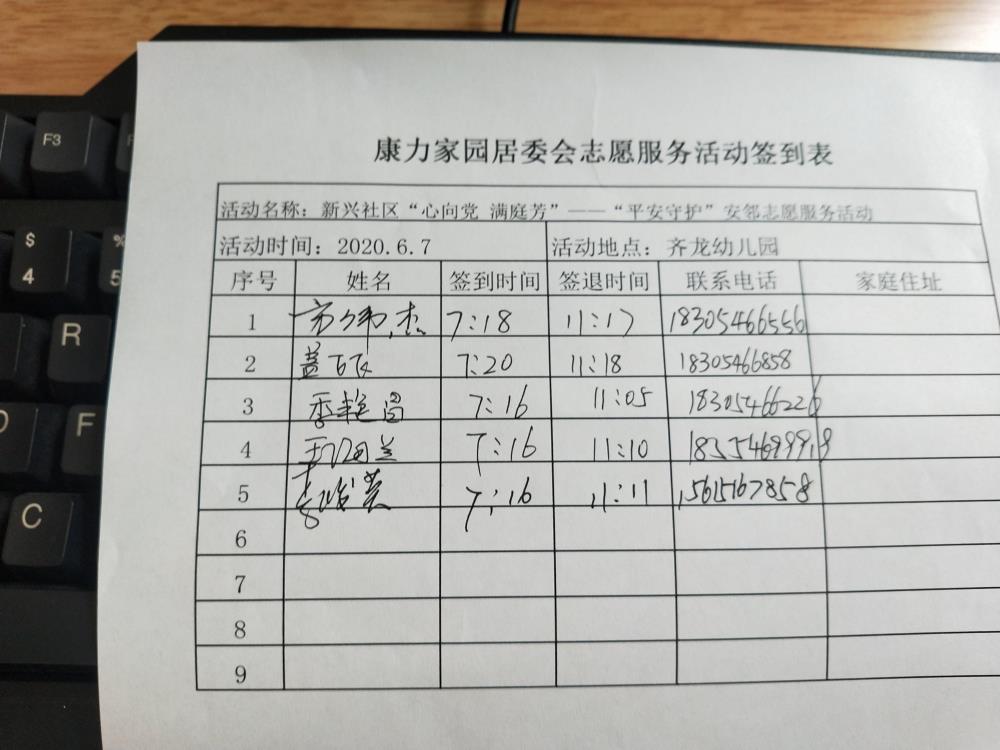 F3
$
4
%
5
R
D
F
C
康力家园居委会志愿服务活动签到表
活动名称：新兴社区“心向党 满庭芳”——“平安守护”安邻志愿服务活动
活动时间：2020.6.7 活动地点：齐龙幼儿园
序号 姓名 签到时间 签退时间 联系电话 家庭住址
1 7:18 11:17 18305466556
2 7:20 11:18 18305466858
3 7:16 11:05 18305466226
4 7:16 11:10
5 7:16 11:11 15615167858
6
7
8
9